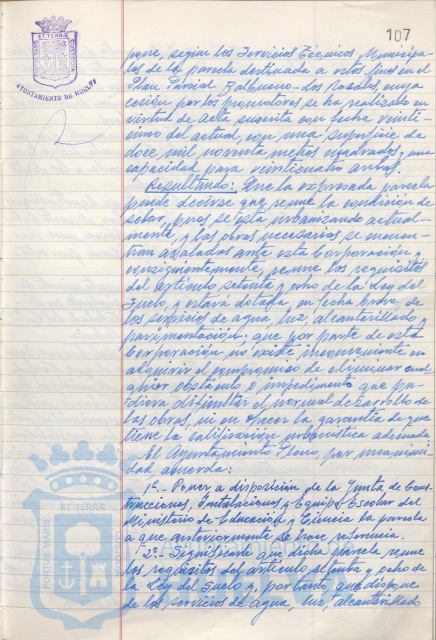 107
PORTUS MARIS ET TERRAE CUSTODIA
AYUNTAMIENTO DE HUELVA
pone, según los Servicios Técnicos Municipa-
les de la parcela destinada a estos fines en el
Plan Parcial Balbueno-Los Rosales, cuya
cesión por los promotores se ha realizado en
virtud de Acta suscrita con fecha veinti-
cinco del actual, con una superficie de
doce mil noventa metros cuadrados, y una
capacidad para veinticuatro aulas.
Resultando: Que la expresada parcela
puede decirse que reune la condición de
solar, pues se está urbanizando actual-
mente, y las obras necesarias se encuen-
tran avaladas ante esta Corporación y
consiguientemente, reune los requisitos
del artículo setenta y ocho de la Ley del
Suelo, y estará dotada, en fecha breve, de
los servicios de agua, luz, alcantarillado y
pavimentación; que por parte de esta
Corporación no existe inconveniente en
adquirir el compromiso de eliminar cual-
quier obstáculo o impedimento que pu-
diera dificultar el normal desarrollo de
las obras, ni en ofrecer la garantía de que
tiene la calificación urbanística adecuada.
El Ayuntamiento Pleno, por unanimi-
dad acuerda:
1º.- Poner a disposición de la Junta de Cons-
trucciones, Instalaciones y Equipo Escolar del
Ministerio de Educación y Ciencia la parcela
a que anteriormente se hace referencia.
2º.- Significarle que dicha parcela reune
los requisitos del artículo setenta y ocho de
la Ley del Suelo y, por tanto, que dispone
de los servicios de agua, luz, alcantarillado
PORTUS MARIS ET TERRAE CUSTODIA